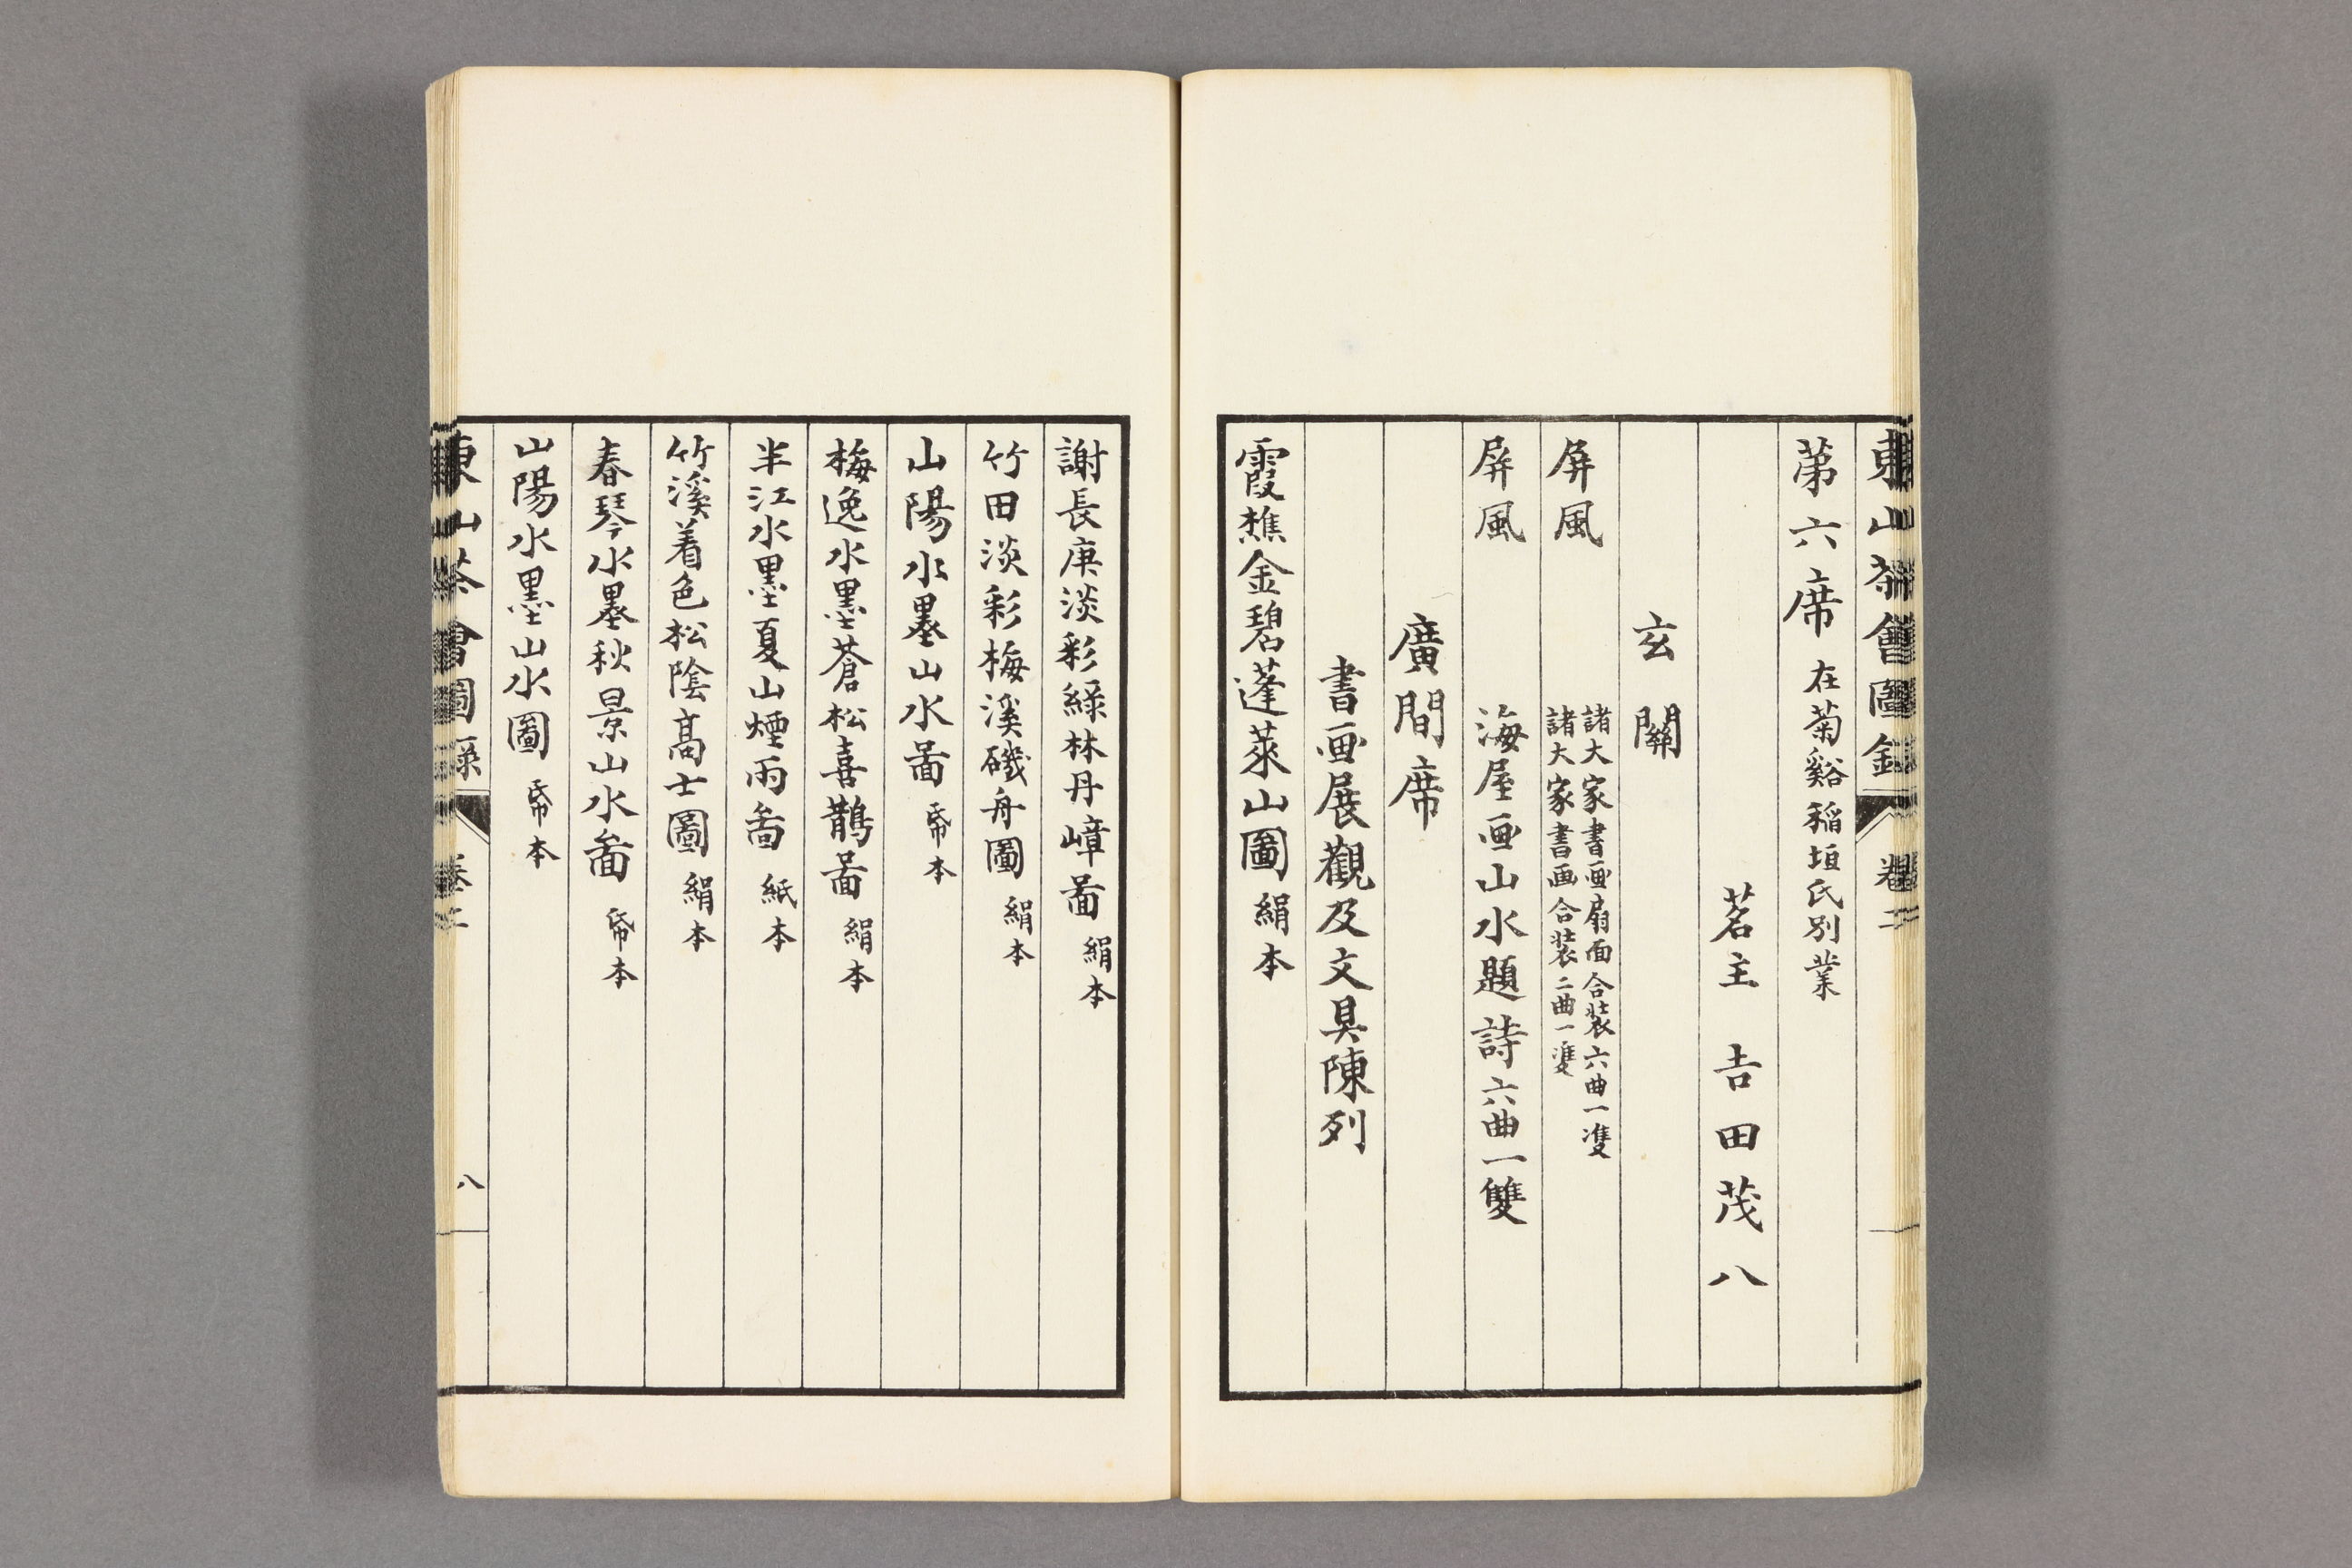 東山茶會圖錄 卷二
第六席 在菊谿稲垣氏別業
茗主 吉田茂八
玄關
屏風 諸大家書画扇面合装六曲一雙
諸大家書画合装二曲一雙
屏風 海屋画山水題詩六曲一雙
廣間席
書画展觀及文具陳列
霞樵金碧蓬萊山圖 絹本
謝長庚淡彩綠林丹嶂啚 絹本
竹田淡彩梅溪磯舟圖 絹本
山陽水墨山水啚 帋本
梅逸水墨蒼松喜鵲啚 絹本
半江水墨夏山煙雨啚 紙本
竹溪着色松陰髙士圖 絹本
春琴水墨秋景山水啚 帋本
山陽水墨山水圖 帋本
東山茶會圖録 卷二 八